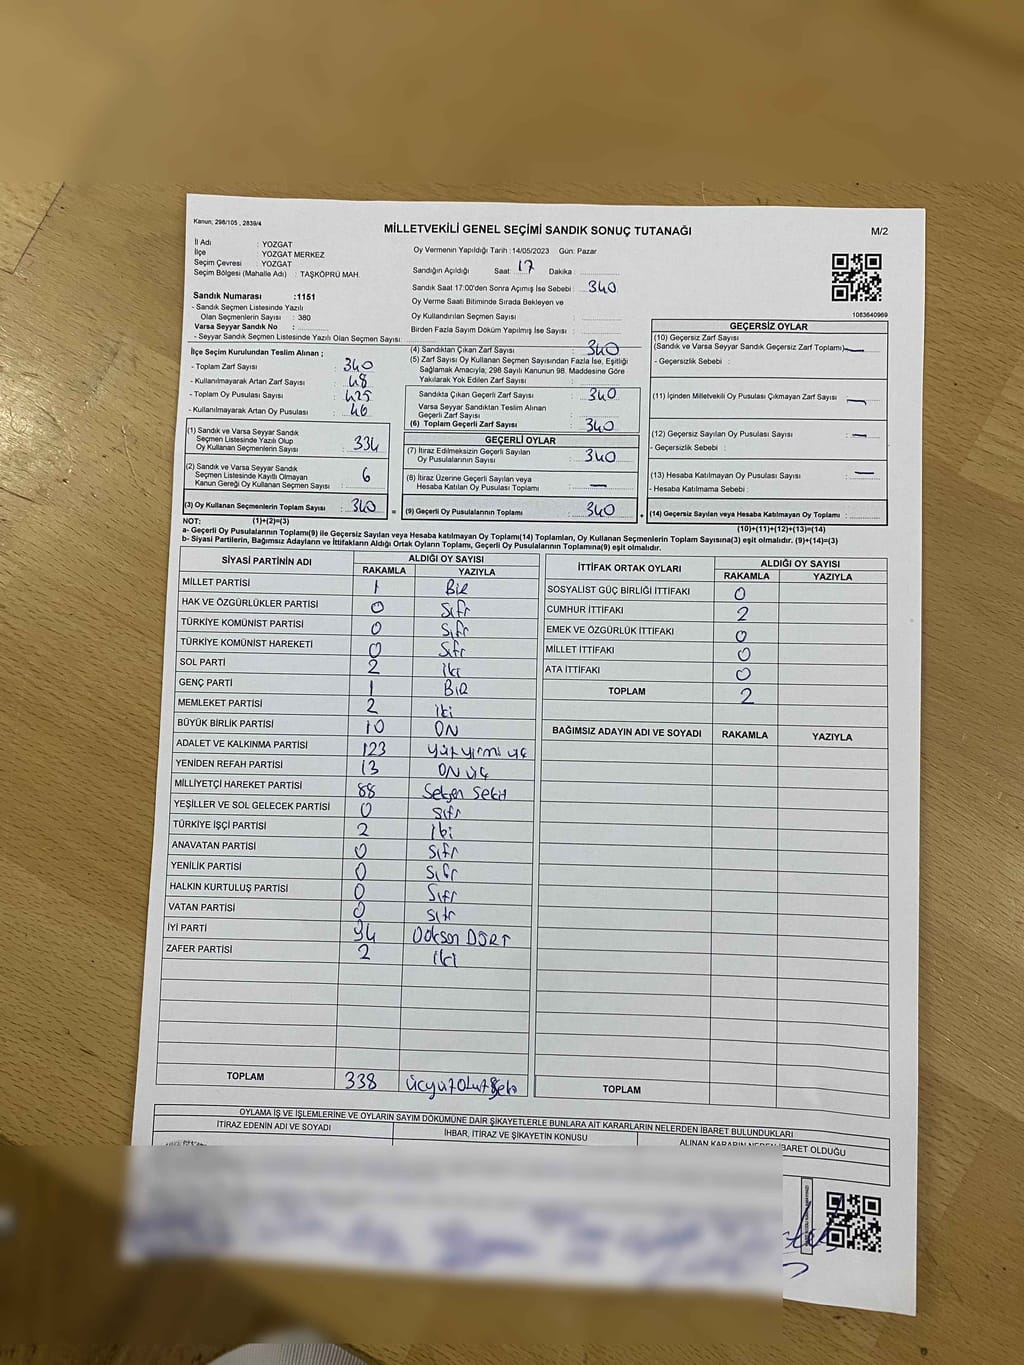 Kanun; 298/105 , 2839/4
MİLLETVEKİLİ GENEL SEÇİMİ SANDIK SONUÇ TUTANAĞI
M/2
İl Adı : YOZGAT
İlçe : YOZGAT MERKEZ
Seçim Çevresi : YOZGAT
Seçim Bölgesi (Mahalle Adı) : TAŞKÖPRÜ MAH.
Sandık Numarası :1151
- Sandık Seçmen Listesinde Yazılı
Olan Seçmenlerin Sayısı : 380
Varsa Seyyar Sandık No :
- Seyyar Sandık Seçmen Listesinde Yazılı Olan Seçmen Sayısı:
Oy Vermenin Yapıldığı Tarih :14/05/2023 Gün: Pazar
Sandığın Açıldığı Saat: 17 Dakika :
Sandık Saat 17:00'den Sonra Açımış İse Sebebi : 340
Oy Verme Saati Bitiminde Sırada Bekleyen ve
Oy Kullandırılan Seçmen Sayısı :
Birden Fazla Sayım Döküm Yapılmış İse Sayısı :
1083640969
İlçe Seçim Kurulundan Teslim Alınan ;
- Toplam Zarf Sayısı : 340
- Kullanılmayarak Artan Zarf Sayısı : 48
- Toplam Oy Pusulası Sayısı : 425
- Kullanılmayarak Artan Oy Pusulası : 46
(1) Sandık ve Varsa Seyyar Sandık
Seçmen Listesinde Yazılı Olup
Oy Kullanan Seçmenlerin Sayısı : 334
(2) Sandık ve Varsa Seyyar Sandık
Seçmen Listesinde Kayıtlı Olmayan
Kanun Gereği Oy Kullanan Seçmen Sayısı : 6
(3) Oy Kullanan Seçmenlerin Toplam Sayısı : 340 =
(4) Sandıktan Çıkan Zarf Sayısı : 340
(5) Zarf Sayısı Oy Kullanan Seçmen Sayısından Fazla İse, Eşitliği
Sağlamak Amacıyla, 298 Sayılı Kanunun 98. Maddesine Göre
Yakılarak Yok Edilen Zarf Sayısı :
Sandıkta Çıkan Geçerli Zarf Sayısı : 340
Varsa Seyyar Sandıktan Teslim Alınan
Geçerli Zarf Sayısı :
(6) Toplam Geçerli Zarf Sayısı : 340
GEÇERLİ OYLAR
(7) İtiraz Edilmeksizin Geçerli Sayılan
Oy Pusulalarının Sayısı : 340
(8) İtiraz Üzerine Geçerli Sayılan veya
Hesaba Katılan Oy Pusulası Toplamı : —
(9) Geçerli Oy Pusulalarının Toplamı : 340 +
GEÇERSİZ OYLAR
(10) Geçersiz Zarf Sayısı
(Sandık ve Varsa Seyyar Sandık Geçersiz Zarf Toplamı) —
- Geçersizlik Sebebi :
(11) İçinden Milletvekili Oy Pusulası Çıkmayan Zarf Sayısı —
(12) Geçersiz Sayılan Oy Pusulası Sayısı : —
- Geçersizlik Sebebi :
(13) Hesaba Katılmayan Oy Pusulası Sayısı : —
- Hesaba Katılmama Sebebi :
(14) Geçersiz Sayılan veya Hesaba Katılmayan Oy Toplamı :
NOT: (1)+(2)=(3)
(10)+(11)+(12)+(13)=(14)
a- Geçerli Oy Pusulaları Toplamı(9) ile Geçersiz Sayılan veya Hesaba katılmayan Oy Toplamı(14) Toplamları, Oy Kullanan Seçmenlerin Toplam Sayısına(3) eşit olmalıdır. (9)+(14)=(3)
b- Siyasi Partilerin, Bağımsız Adayların ve İttifakların Aldığı Ortak Oyların Toplamı, Geçerli Oy Pusulalarının Toplamına(9) eşit olmalıdır.
SİYASİ PARTİNİN ADI
ALDIĞI OY SAYISI
RAKAMLA YAZIYLA
MİLLET PARTİSİ 1 Bir
HAK VE ÖZGÜRLÜKLER PARTİSİ 0 Sıfr
TÜRKİYE KOMÜNİST PARTİSİ 0 Sıfr
TÜRKİYE KOMÜNİST HAREKETİ 0 Sıfr
SOL PARTİ 2 iki
GENÇ PARTİ 1 Bir
MEMLEKET PARTİSİ 2 iki
BÜYÜK BİRLİK PARTİSİ 10 ON
ADALET VE KALKINMA PARTİSİ 123 yüz yirmi üç
YENİDEN REFAH PARTİSİ 13 ON üç
MİLLİYETÇİ HAREKET PARTİSİ 88 Seksen Sekiz
YEŞİLLER VE SOL GELECEK PARTİSİ 0 sıfr
TÜRKİYE İŞÇİ PARTİSİ 2 iki
ANAVATAN PARTİSİ 0 Sıfr
YENİLİK PARTİSİ 0 Sıfr
HALKIN KURTULUŞ PARTİSİ 0 Sıfr
VATAN PARTİSİ 0 Sıfr
İYİ PARTİ 94 Doksan DÖRT
ZAFER PARTİSİ 2 iki
TOPLAM 338
İTTİFAK ORTAK OYLARI
ALDIĞI OY SAYISI
RAKAMLA YAZIYLA
SOSYALİST GÜÇ BİRLİĞİ İTTİFAKI 0
CUMHUR İTTİFAKI 2
EMEK VE ÖZGÜRLÜK İTTİFAKI 0
MİLLET İTTİFAKI 0
ATA İTTİFAKI 0
TOPLAM 2
BAĞIMSIZ ADAYIN ADI VE SOYADI RAKAMLA YAZIYLA
TOPLAM
OYLAMA İŞ VE İŞLEMLERİNE VE OYLARIN SAYIM DÖKÜMÜNE DAİR ŞİKAYETLERLE BUNLARA AİT KARARLARIN NELERDEN İBARET BULUNDUKLARI
İTİRAZ EDENİN ADI VE SOYADI
İHBAR, İTİRAZ VE ŞİKAYETİN KONUSU
ALINAN KARARIN NEDEN İBARET OLDUĞU